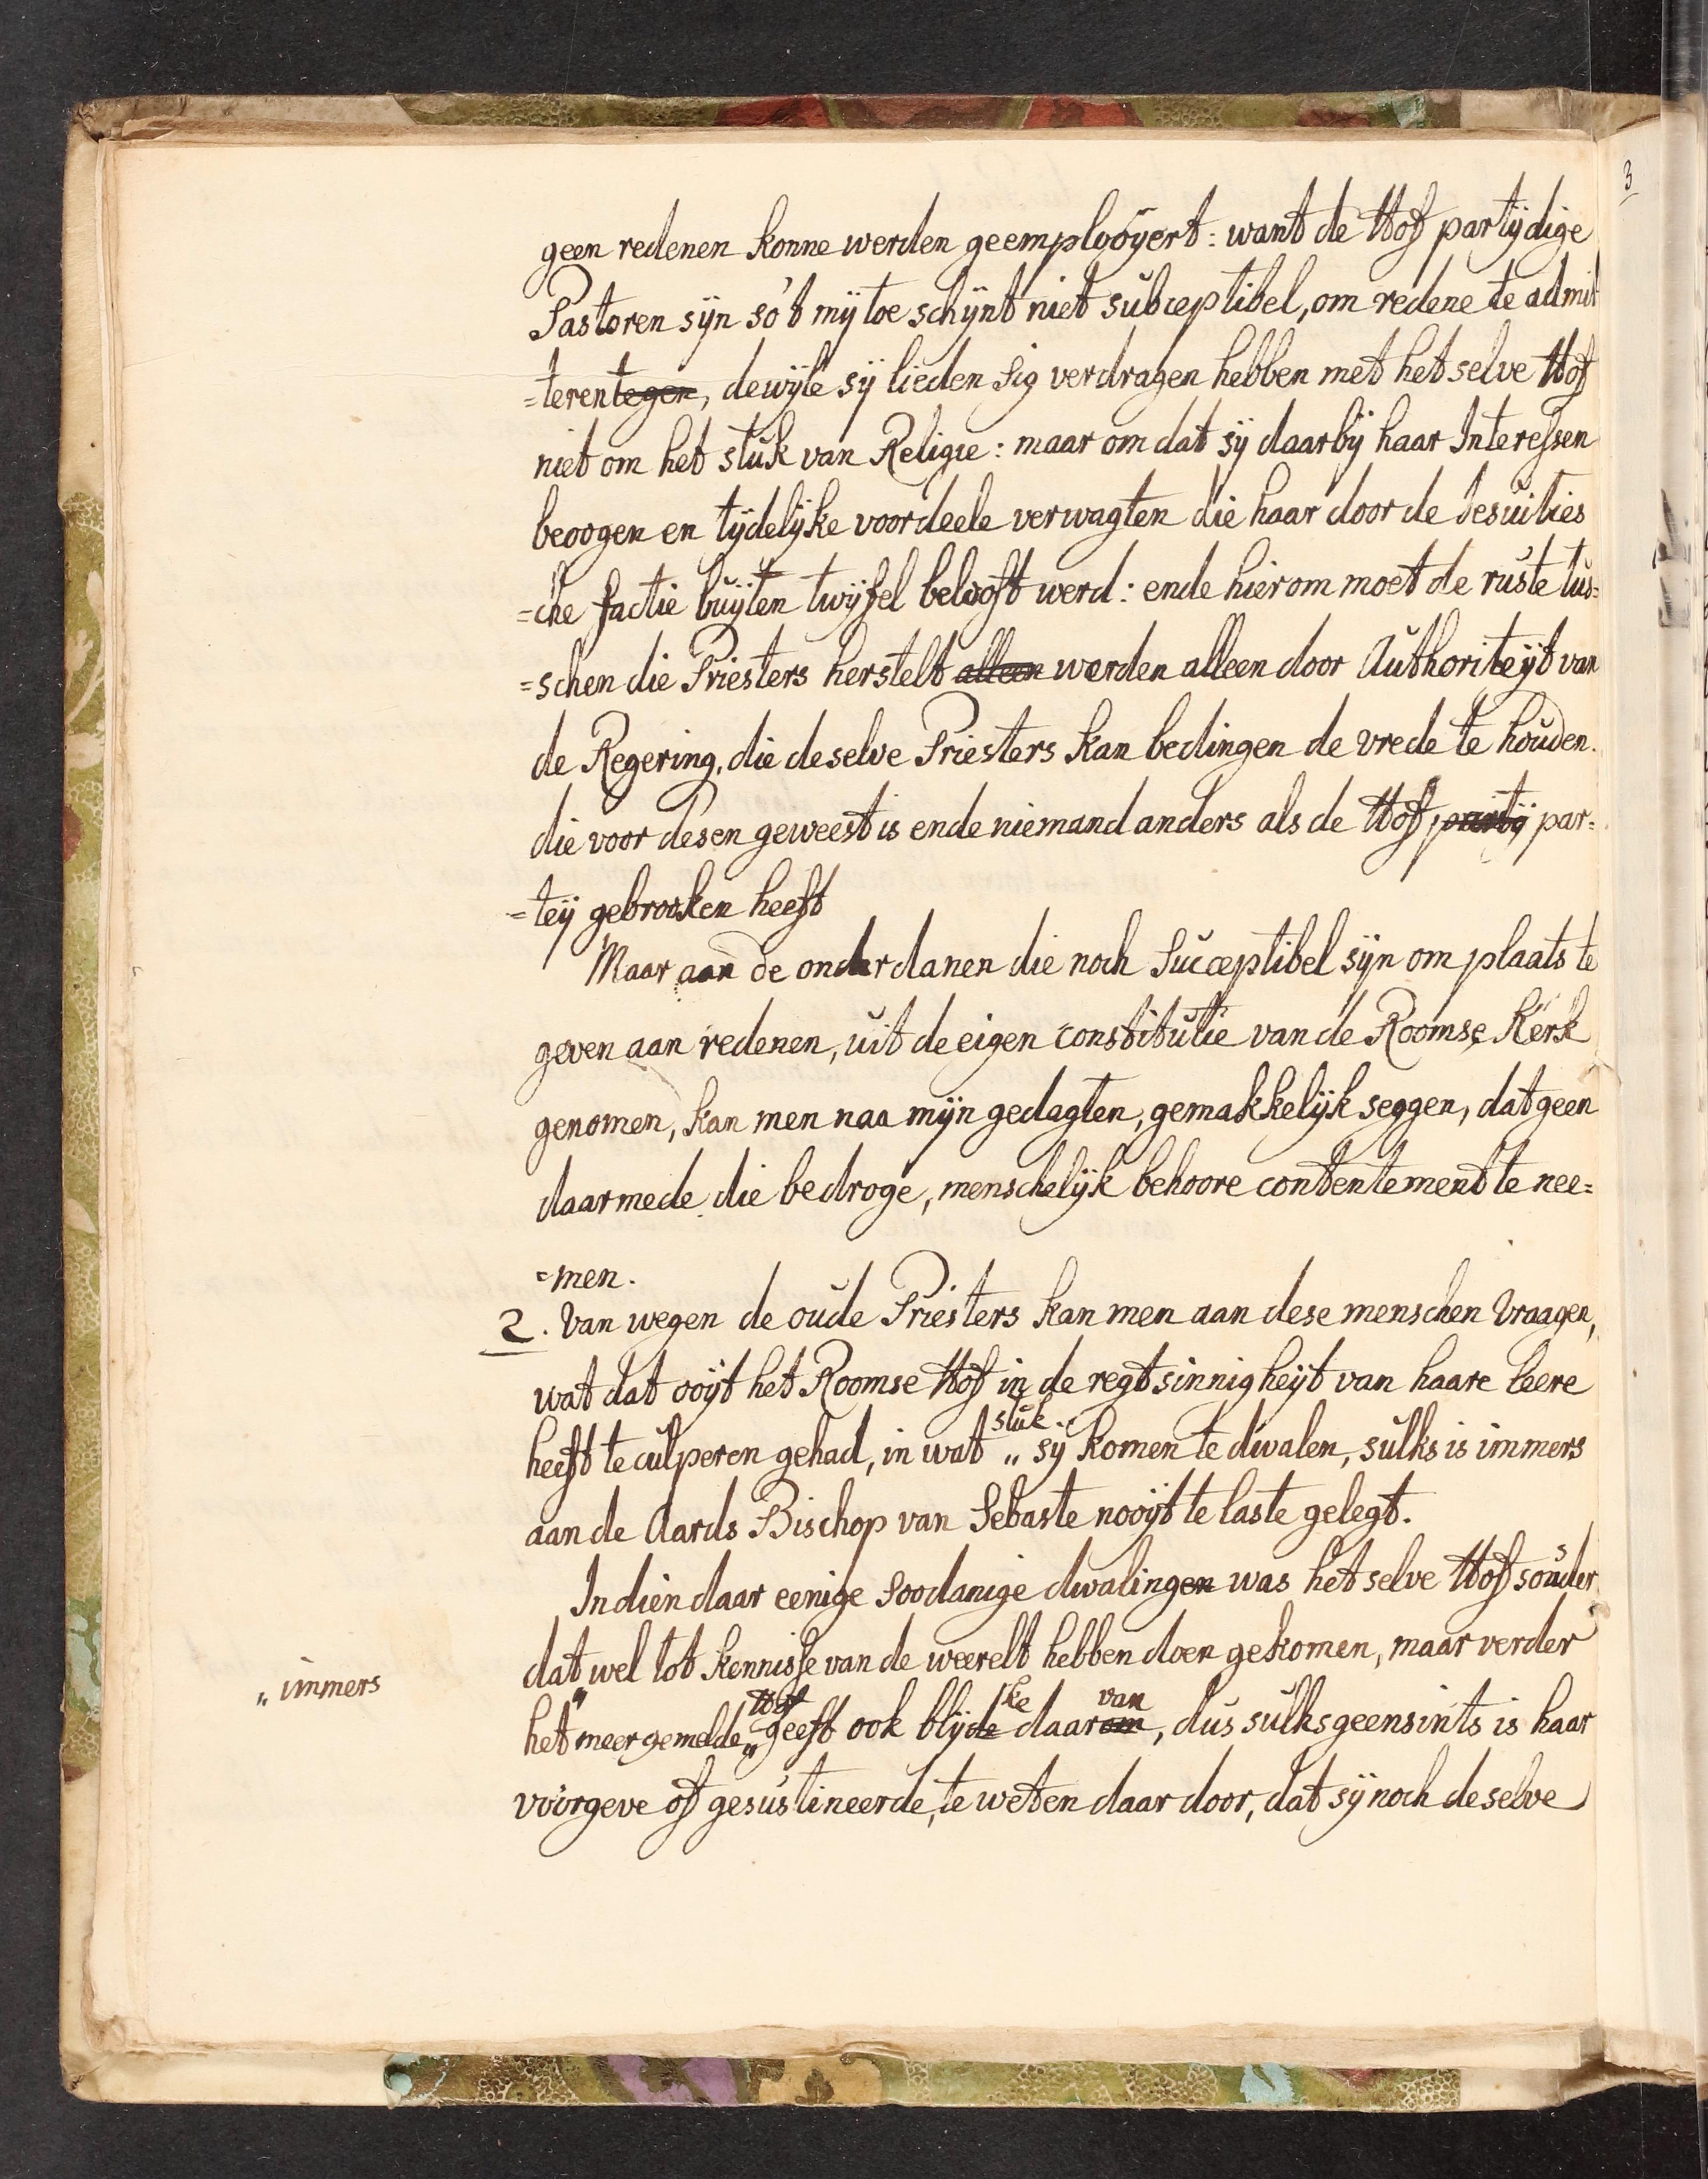 3
geen redenen konne werden geemplooyert: want de Hof partijdige
Pastoren sijn so't mij toe schijnt niet subceptibel, om redene te admit
=terentegen, dewijle sij lieden sig verdragen hebben met het selve Hof
niet om het stuk van Religie: maar om dat sij daarbij haar Interessen
beoogen en tijdelijke voordeele verwagten die haar door de Jesuities
=che factie buijten twijfel belooft werd: ende hierom moet de ruste tus=
=schen die Priesters herstelt alleen worden alleen door Authoriteijt van
de Regering, die deselve Priesters kan bedingen de vrede te houden.
die voor desen geweest is ende niemand anders als de Hof partij par=
=teij gebrooken heeft
Maar aan de onderdanen die noch Succeptibel sijn om plaats te
geven aan redenen, uit de eigen constitutie van de Roomse Kerk
genomen, kan men naa mijn gedagten, gemakkelijk seggen, dat geen
daarmede die bedroge, menschelijk behoore contentement te nee=
=men.
2. Van wegen de oude Priesters kan men aan dese menschen Vraagen,
wat dat ooijt het Roomse Hof in de regtsinnigheijt van haare leere
stuk
heeft te culperen gehad, in wat „ sij komen te dwalen, sulks is immers
aan de Aards Bischop van Sebaste nooijt te laste gelegt.
Indien daar eenige Soodanige dwalingen was het selve Hof souder
dat wel tot kennisse van de weerelt hebben doen gekomen, maar verder
„ immers
Hof ke van
het „ meergemelde „ geeft ook blijde daarom, dus sulks geensints is haar
voorgeve of gesustineerde, te weten daar door, dat sij noch deselve